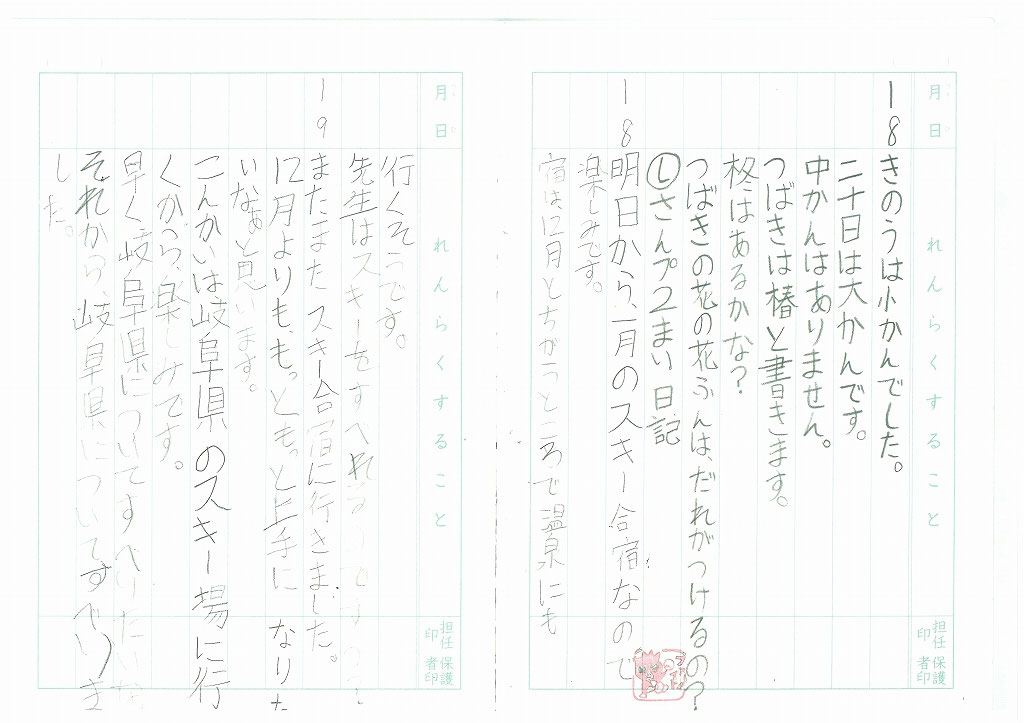 月日
れんらくすること
担任印
保護者印
1 8 きのうは小かんでした。
二十日は大かんです。
中かんはありません。
つばきは椿と書きます。
柊はあるかな?
つばきの花の花ふんは、だれがつけるの?
しさんプ2まい 日記
1 8 明日から、一月のスキー合宿なので
楽しみです。
宿は、12月とちがうところで温泉にも
月日
れんらくすること
担任印
保護者印
行くそうです。
先生はスキーをすべれる
1 9 またまたスキー合宿に行きました。
12月よりも、もっともっと上手になりた
いなぁと思います。
こんかいは岐阜県のスキー場に行
くから、楽しみです。
早く岐阜県についてすべりたいな
それから、岐阜県についてすべりま
した。